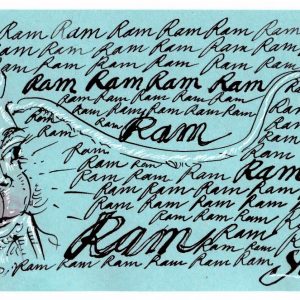 Ram Ram Ram Ram Ram Ram
Ram Ram Ram Ram Ram Ram
Ram Ram Ram Ram
Ram Ram Ram Ram Ram
Ram Ram Ram Ram Ram Ram
Ram Ram Ram
Ram Ram
Ram Ram
Ram Ram Ram Ram
Ram Ram Ram Ram Ram
Ram Ram Ram Ram
Ram Ram Ram Ram
Ram Ram Ram Ram
Ram Ram Ram
Ram Ram Ram Ram Ram Ram